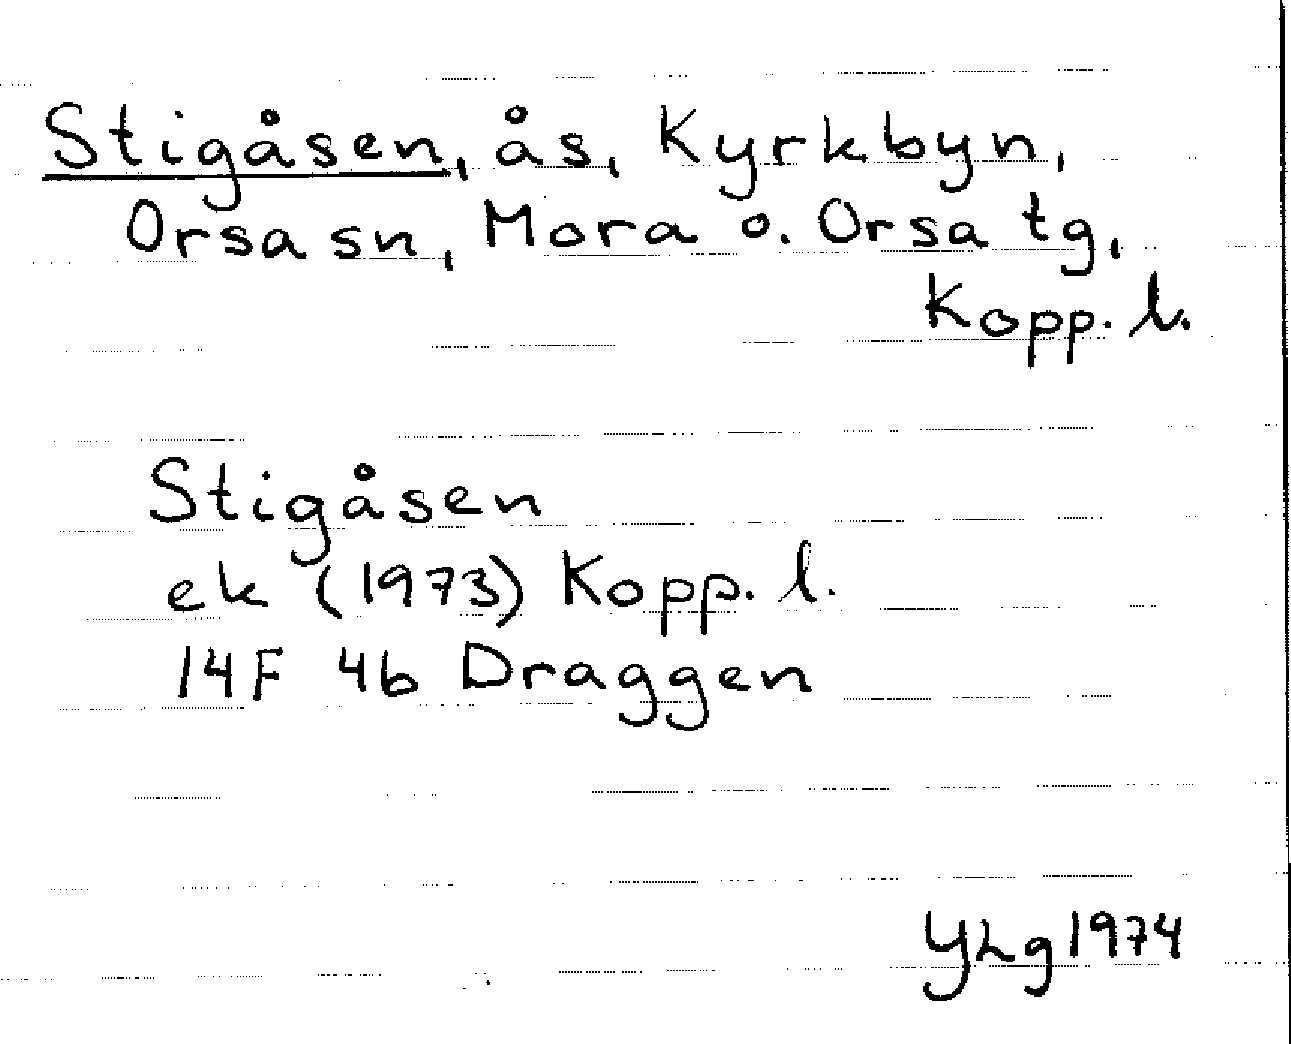 Stigåsen, ås, Kyrkbyn,
Orsa sn, Mora o. Orsa tg,
Kopp. l.
Stigåsen
ek (1973) Kopp. l.
14F 4b Draggen
YLg 1974